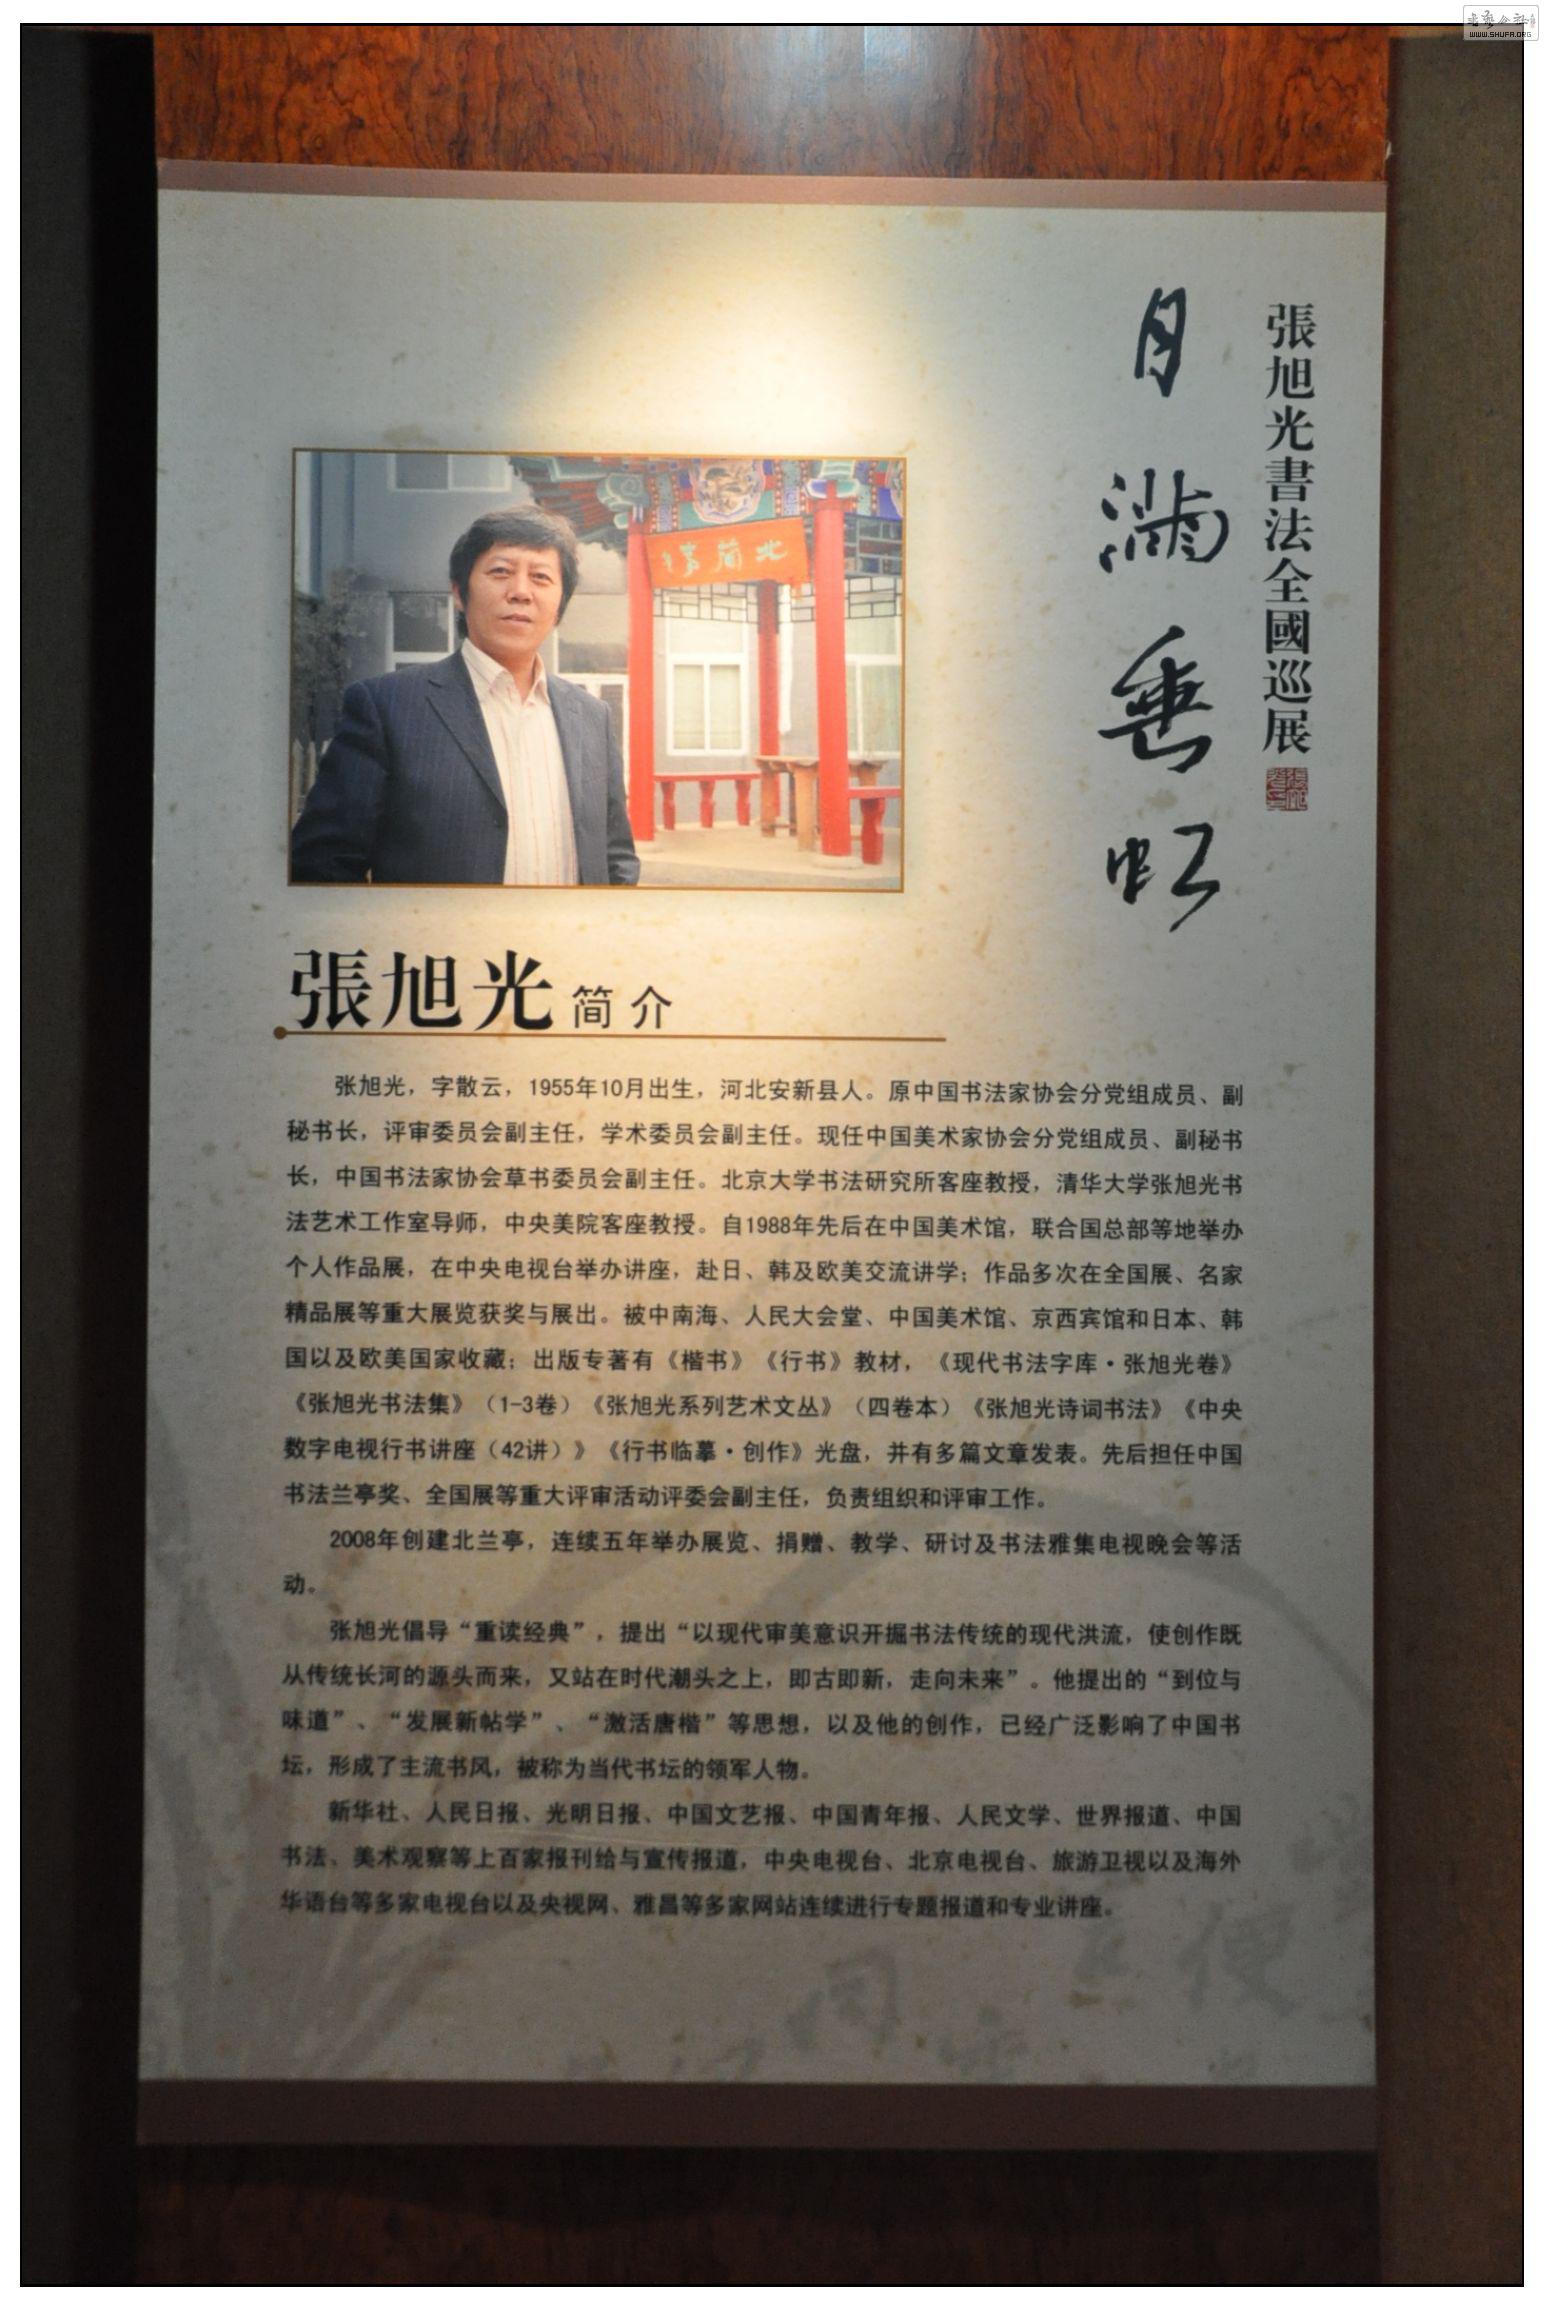 張旭光書法全國巡展
月滿垂虹
北蘭亭
張旭光 简介
张旭光，字散云，1955年10月出生，河北安新县人。原中国书法家协会分党组成员、副
秘书长，评审委员会副主任，学术委员会副主任。现任中国美术家协会分党组成员、副秘书
长，中国书法家协会草书委员会副主任。北京大学书法研究所客座教授，清华大学张旭光书
法艺术工作室导师，中央美院客座教授。自1988年先后在中国美术馆，联合国总部等地举办
个人作品展，在中央电视台举办讲座，赴日、韩及欧美交流讲学；作品多次在全国展、名家
精品展等重大展览获奖与展出。被中南海、人民大会堂、中国美术馆、京西宾馆和日本、韩
国以及欧美国家收藏；出版专著有《楷书》《行书》教材，《现代书法字库·张旭光卷》
《张旭光书法集》（1-3卷）《张旭光系列艺术文丛》（四卷本）《张旭光诗词书法》《中央
数字电视行书讲座（42讲）》《行书临摹·创作》光盘，并有多篇文章发表。先后担任中国
书法兰亭奖、全国展等重大评审活动评委会副主任，负责组织和评审工作。
2008年创建北兰亭，连续五年举办展览、捐赠、教学、研讨及书法雅集电视晚会等活
动。
张旭光倡导“重读经典”，提出“以现代审美意识开掘书法传统的现代洪流，使创作既
从传统长河的源头而来，又站在时代潮头之上，即古即新，走向未来”。他提出的“到位与
味道”、“发展新帖学”、“激活唐楷”等思想，以及他的创作，已经广泛影响了中国书
坛，形成了主流书风，被称为当代书坛的领军人物。
新华社、人民日报、光明日报、中国文艺报、中国青年报、人民文学、世界报道、中国
书法、美术观察等上百家报刊给与宣传报道，中央电视台、北京电视台、旅游卫视以及海外
华语台等多家电视台以及央视网、雅昌等多家网站连续进行专题报道和专业讲座。
WWW.SHUFA.ORG